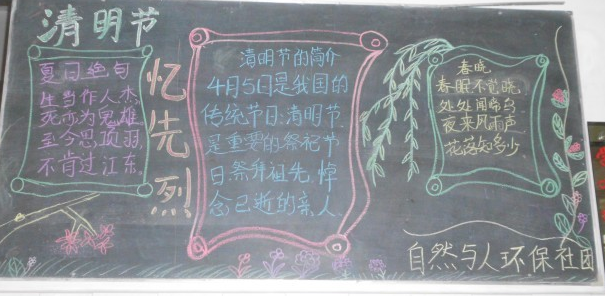 清明节
夏日绝句
生当作人杰
死亦为鬼雄
至今思项羽,
不肯过江东.
忆先烈
清明节的简介
4月5日是我国的
传统节日:清明节.
是重要的祭祀节
日.祭拜祖先,悼
念已逝的亲人.
春晓
春眠不觉晓,
处处闻啼鸟.
夜来风雨声
花落知多少
自然与人环保社团